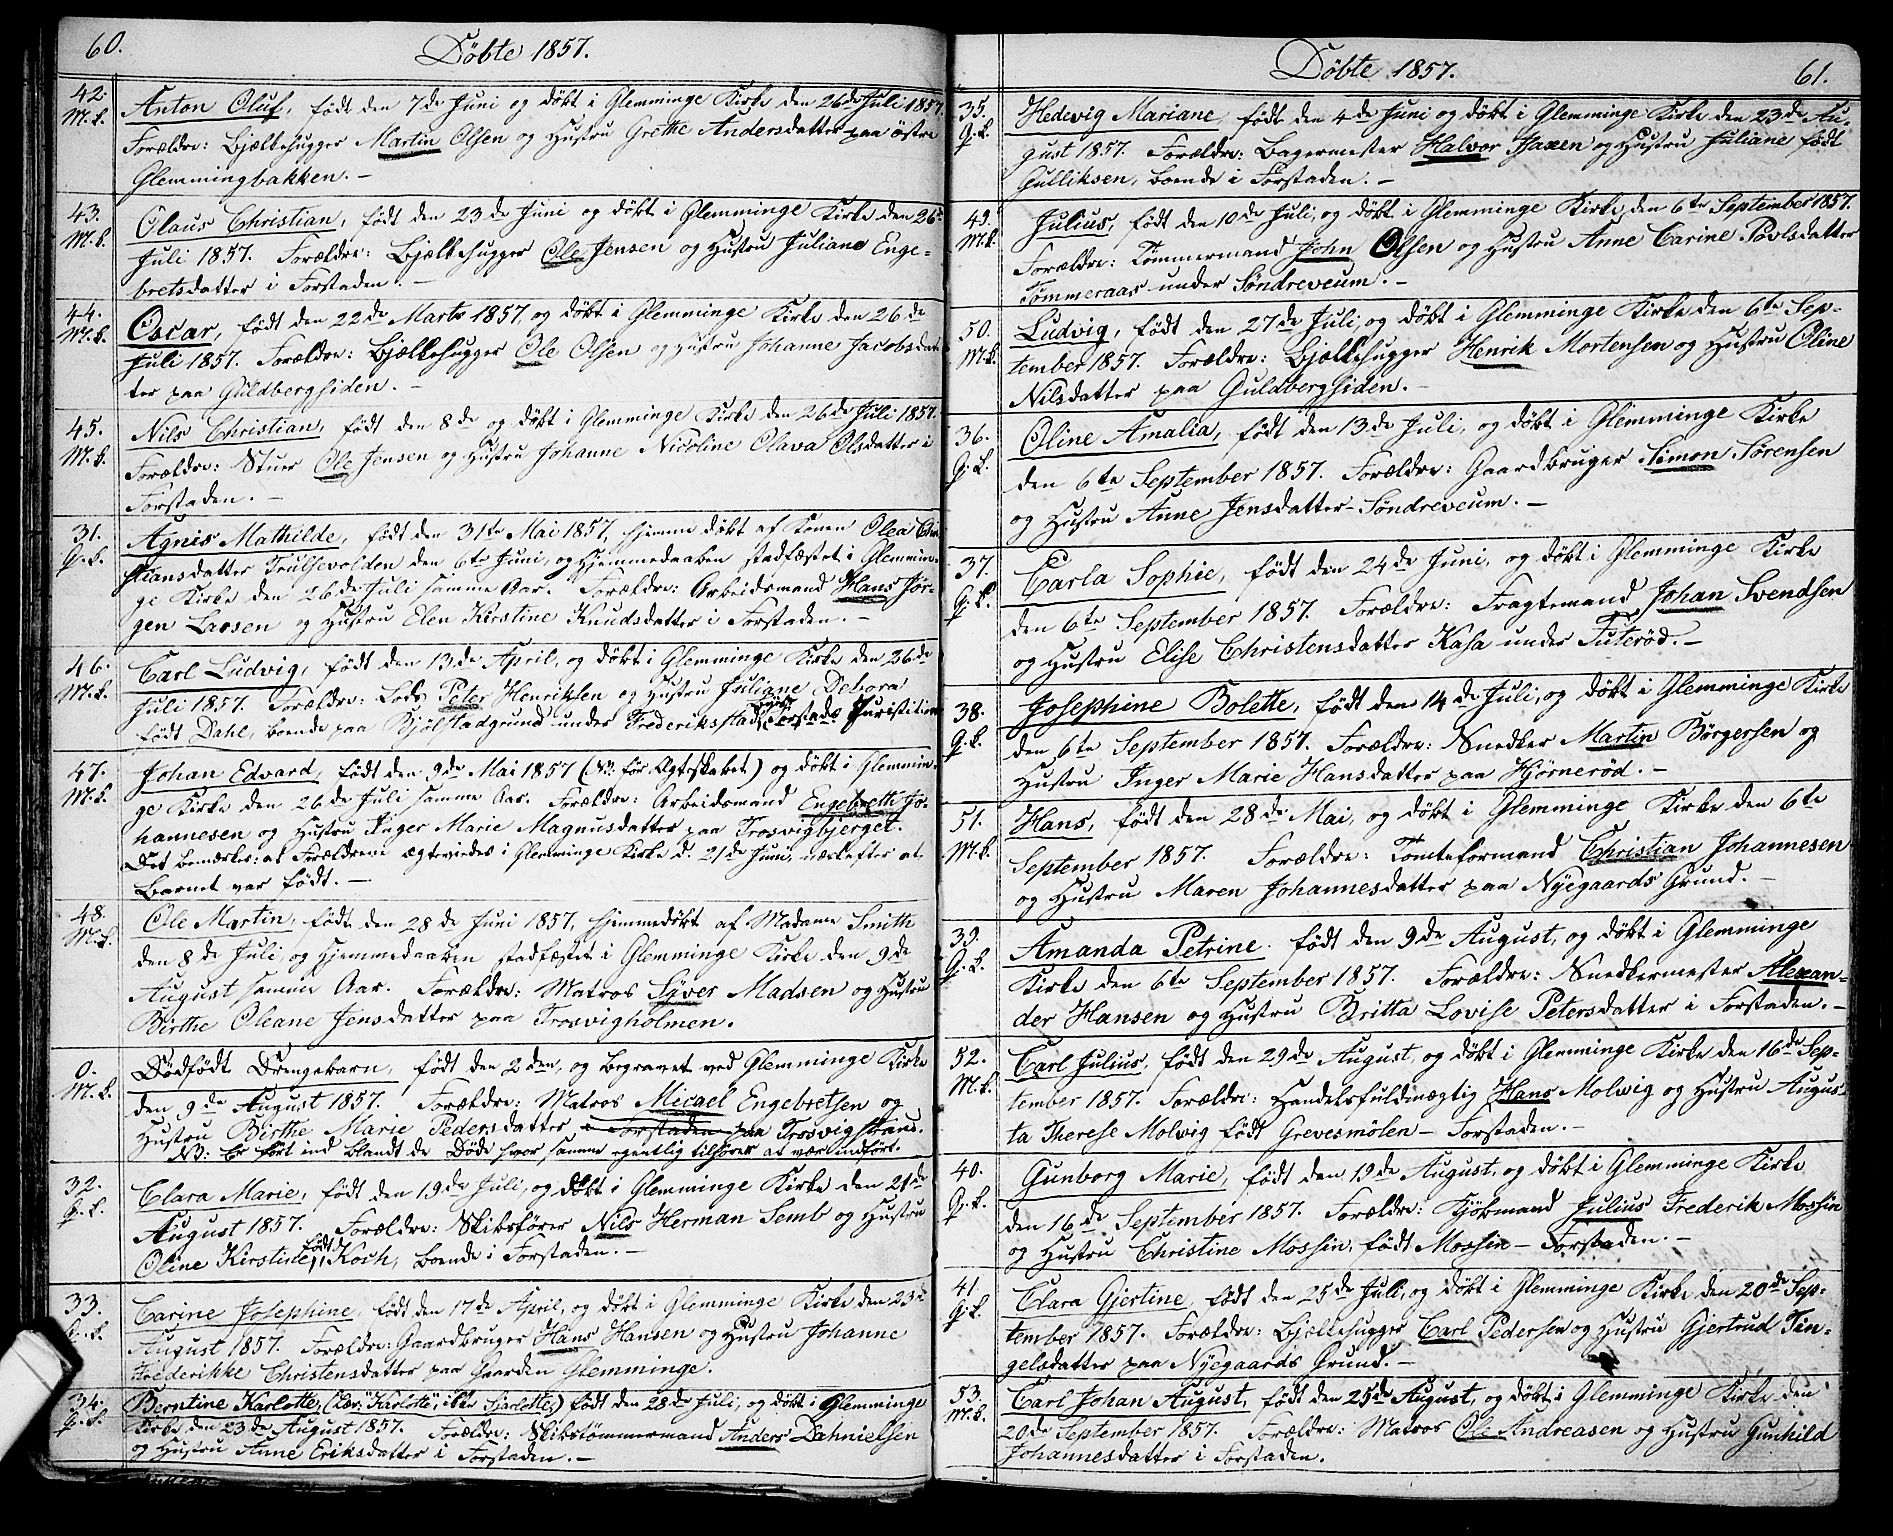 60.
Døbte 1857.
42.
M. k.
Anton Oluf, født den 7de Juni og døbt i Glemminge Kirke den 26de Juli 1857.
Forældre: Bjælkehugger Martin Olsen og Hustru Grethe Andersdatter paa østre
Glemmingbakken. –
43.
M. k.
Olaus Christian, født den 23de Juni og døbt i Glemminge Kirke den 26de
Juli 1857. Forældre: Bjælkehugger Ole Jensen og Hustru Juliane Enge-
bretsdatter i Forstaden. –
44.
M. k.
Oscar, født den 22de Marts 1857 og døbt i Glemminge Kirke den 26de
Juli 1857. Forældre: Bjælkehugger Ole Olsen og Hustru Johanne Jacobsdat-
ter paa Guldbergsiden. –
45.
M. k.
Nils Christian, født den 8de og døbt i Glemminge Kirke den 26de Juli 1857.
Forældre: Stuer Ole Jensen og Hustru Johanne Nicoline Olava Olsdatter i
Forstaden. –
31.
Q. k.
Agnis Mathilde, født den 31te Mai 1857, hjemmedøbt af Konen Olea Chri-
stiansdatter Trulsevolden den 6te Juni, og Hjemmedaaben stadfæstet i Glemmin-
ge Kirke den 26de Juli samme Aar. Forældre: Arbeidsmand Hans Jør-
gen Larsen og Hustru Elen Kirstine Knudsdatter i Forstaden. –
46.
M. k.
Carl Ludvig, født den 13de April, og døbt i Glemminge Kirke den 26de
Juli 1857. Forældre: Lods Peter Henriksen og Hustru Juliane Debora
født Dahl, boende paa Bjølstadgrund under Frederiksstads Forstads Juristition
47.
M. k.
Johan Edvard, født den 9de Mai 1857 (NB: før Ægteskabet) og døbt i Glemmin-
ge Kirke den 26de Juli samme Aar. Forældre: Arbeidsmand Engebreth Jo-
hannesen og Hustru Inger Marie Magnusdatter paa Trosvigbjerget.
Det bemærkes: at Forældrene ægteviedes i Glemminge Kirke d. 21de Juni, næstefter at
Barnet var født. –
48.
M. k.
Ole Martin, født den 28de Juni 1857, hjemmedøbt af Madame Smith
den 8de Juli, og Hjemmedaaben stadfæstet i Glemminge Kirke den 9de
August samme Aar. Forældre: Matros Syver Madsen og Hustru
Birthe Oleane Jensdatter paa Trosvigholmen.
0.
M. k.
Dødfødt Drengebarn, født den 2den, og begravet ved Glemminge Kirke
den 9de August 1857. Forældre: Matros Micael Engebretsen og
Hustru Birthe Marie Pedersdatter i Forstaden paa Trosvigstrand.
NB: Er ført ind blandt de Døde hvor samme egentlig tilhører at være indført.
32.
Q. k.
Clara Marie, født den 19de Juli, og døbt i Glemminge Kirke den 21de
August 1857. Forældre: Skibsfører Nils Herman Semb og Hustru
Oline Kirstine født Koch, boende i Forstaden. –
33.
Q. k.
Carine Josephine, født den 17de April, og døbt i Glemminge Kirke den 23de
August 1857. Forældre: Gaardbruger Hans Hansen og Hustru Johanne
Frederikke Christensdatter paa Gaarden Glemminge.
34.
Q. k.
Berntine Karlotte, (Læs: Karlotte, ikke Sjarlotte) født den 28de Juli, og døbt i Glemminge
Kirke den 23de August 1857. Forældre: Skibstømmermand Anders Dahnielsen
og Hustru Anne Eriksdatter i Forstaden. –
Døbte 1857.
61.
35.
Q. k.
Hedevig Mariane, født den 4de Juni og døbt i Glemminge Kirke den 23de Au-
gust 1857. Forældre: Bagermester Halvor Isaxen og Hustru Juliane født
Gulliksen, boende i Forstaden. –
49.
M. k.
Julius, født den 10de Juli, og døbt i Glemminge Kirke den 6te September 1857.
Forældre: Tømmermand John Olsen og Hustru Anne Carine Povlsdatter
Tømmeraas under Søndreveum. –
50.
M. k.
Ludvig, født den 27de Juli, og døbt i Glemminge Kirke den 6te Sep-
tember 1857. Forældre: Bjælkehugger Henrik Mortensen og Hustru Oline
Nilsdatter paa Guldbergsiden. –
36.
Q. k.
Oline Amalia, født den 13de Juli, og døbt i Glemminge Kirke
den 6te September 1857. Forældre: Gaardbruger Simon Sørensen
og Hustru Anne Jensdatter – Søndreveum. –
37.
Q. k.
Carla Sophie, født den 24de Juni, og døbt i Glemminge Kirke
den 6te September 1857. Forældre: Fragtemand Johan Svendsen
og Hustru Elise Christensdatter Kasa under Tuterød. –
38.
Q. k.
Josephine Bolette, født den 14de Juli, og døbt i Glemminge Kirke
den 6te September 1857. Forældre: Snedker Martin Børgersen og
Hustru Inger Marie Hansdatter paa Hjørnerød. –
51.
M. k.
Hans, født den 28de Mai, og døbt i Glemminge Kirke den 6te
September 1857. Forældre: Tomteformand Christian Johannesen
og Hustru Maren Johannesdatter paa Nyegaards Grund. –
39.
Q. k.
Amanda Petrine. født den 9de August, og døbt i Glemminge
Kirke den 6te September 1857. Forældre: Snedkermester Alexan-
der Hansen og Hustru Britta Lovise Petersdatter i Forstaden. –
52.
M. k.
Carl Julius, født den 29de August, og døbt i Glemminge Kirke den 16de Sep-
tember 1857. Forældre: Handelsfuldmægtig Hans Molwig og Hustru Augus-
ta Therese Molwig født Grevesmölen – Forstaden. –
40.
Q. k.
Gunborg Marie, født den 19de August, og døbt i Glemminge Kirke
den 16de September 1857. Forældre: Kjøbmand Julius Frederik Mossin
og Hustru Christine Mossin, født Mossin – Forstaden. –
41.
Q. k.
Clara Gjertine, født den 25de Juli, og døbt i Glemminge Kirke den 20de Sep-
tember 1857. Forældre: Bjælkehugger Carl Pedersen og Hustru Gjertrud Tin-
gelsdatter paa Nyegaards Grund. –
53.
M. k.
Carl Johan August, født den 25de August, og døbt i Glemminge Kirke den
20de September 1857. Forældre: Matros Ole Andreasen og Hustru Gunhild
Johannesdatter i Forstaden.